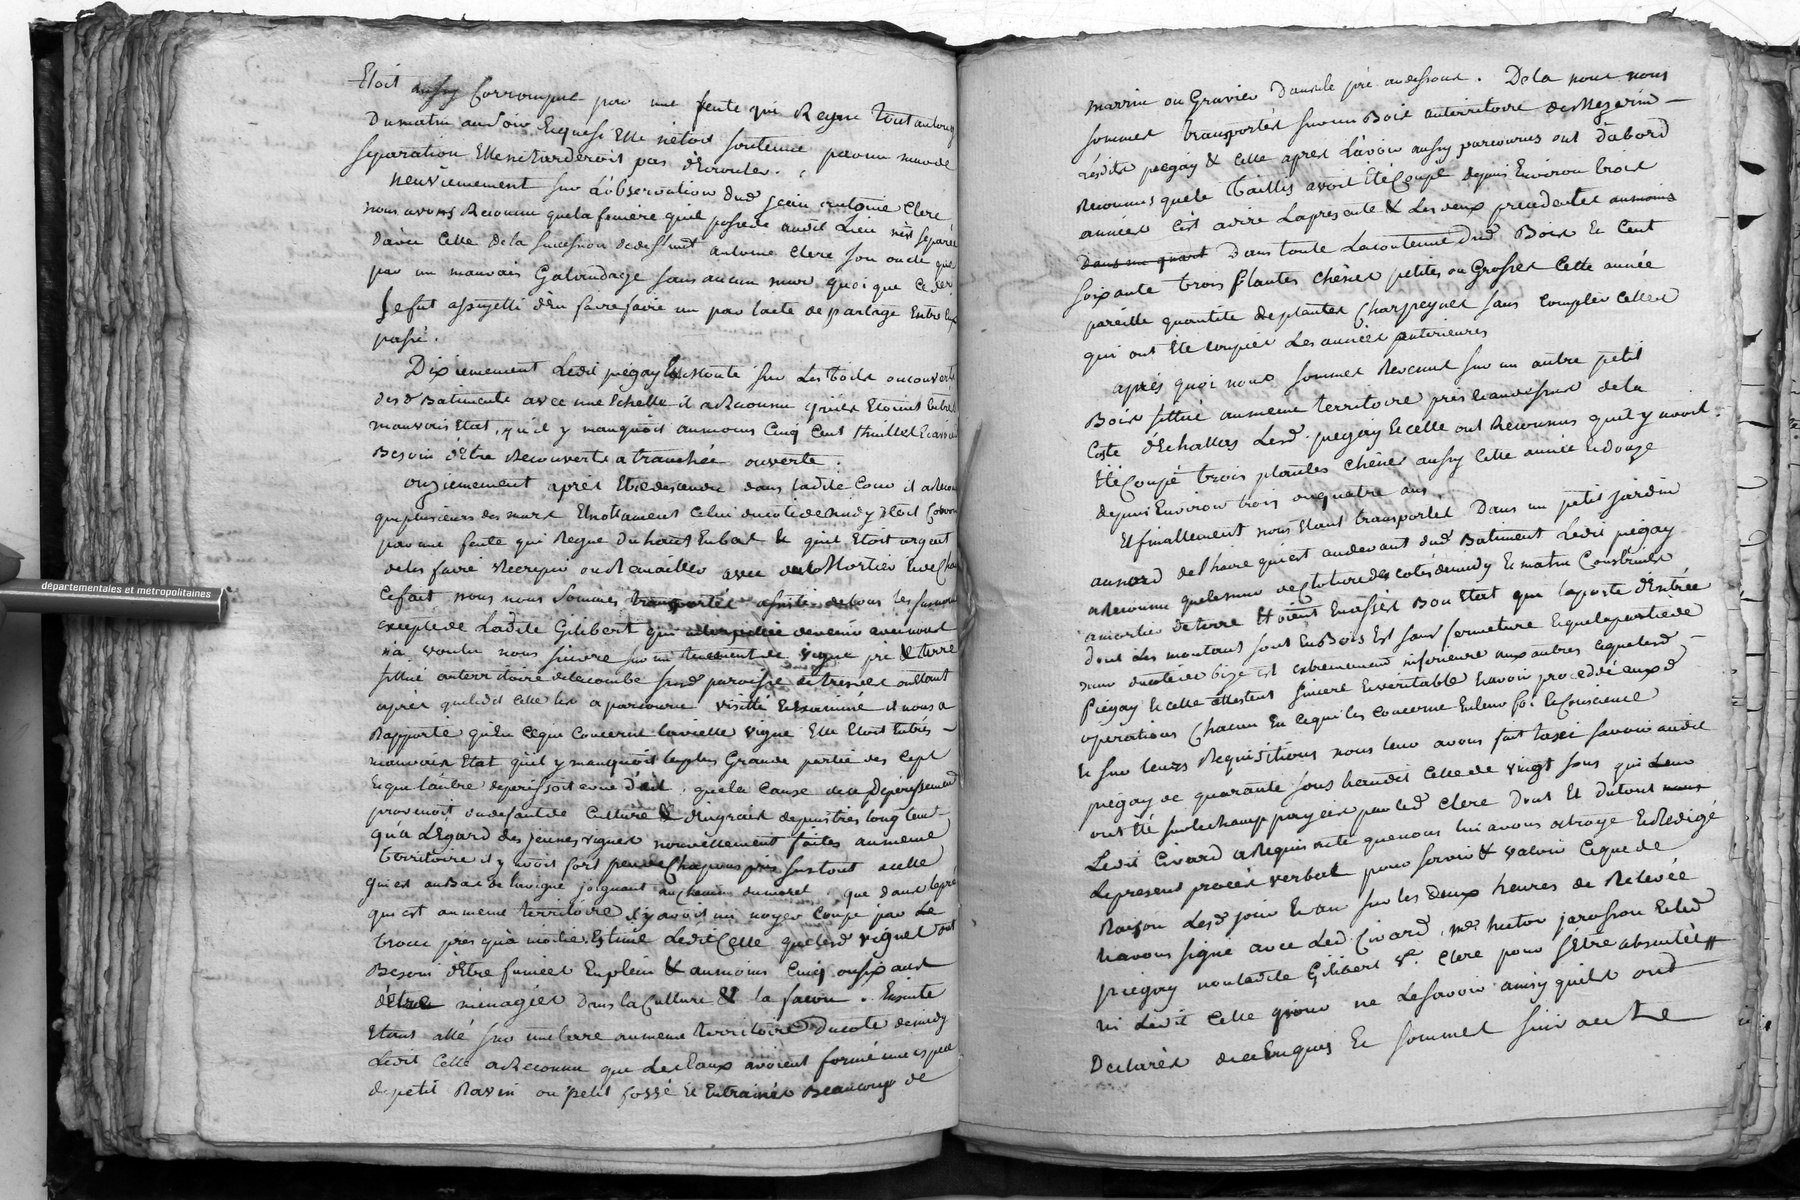 Etoit aussy Corrompue par une fente qui Regne tout au long
Du matin au Soir Ecquesi Elle netoit Soutenue par un mur de
Separation Elle ne tarderoit pas d'Ecrouler.
Neuviemement Sur L'observation Dud. jean antoine Clerc
nous avons Reconnu que la feniere quil possede audit Lieu n'est Separée
d'avec Celle de la Succession de deffunt antoine Clerc Son oncle que
par un mauvais Galandage Sans aucun mur quoi que Ce der
Se fut assujetti d'En faire faire un par lacte de partage Entre Eux
passé.
Dixiemement Ledit piegay Monté Sur Les toits ou couverts
desd. Batiments avec une Echelle il a Reconnu quils Etoient En tres
mauvais Etat, qu'il y manquoit aumoins Cinq Cent thuilles
Besoin d'Etre Recouverts a tranchée ouverte.
onziemement apres Etre descendu dans ladite Cour il a Reconnu
que plusieurs des murs Et nottament Celui du coté de midy Etoit Corrompu
par une fente qui Regne du haut En bas Et quil Etoit urgent
de les faire Recrepir ou Remailler avec du Mortier
Ce fait nous nous Sommes transportés assisté de tous les Susnommés
excepté de Ladite Gilibert qui
n'a voulu nous Suivre Sur un tenement de vigne pré & terre
Situé au territoire de la combe Susd. paroisse de treves ou Etant
apres que ledit Celle les a parcouru visitté Et Examiné il nous a
Rapporté qu'En Ceque Concerne la vielle vigne Elle Etoit En trés
mauvais Etat quil y manquoit la plus Grande partie des Cepts
Et que l'autre deperissoit a vue d'œil, que la Cause de ce deperissement
provenoit du defaut de Culture & d'Engrais depuis trés long tems
qu'a L'Égard des jeunes vignes nouvellement faites au meme
Territoire il y avoit fort peu de Chapons pris Surtout a celle
qui est au Bas de la vigne joignant au chemin du moret, que dans le pré
qui est au meme territoire il y avoit un noyer Coupé par Le
tronc près qu'a moitié. Estime Ledit Celle que lesd. vignes ont
Besoin d'Etre fumées En plein & aumoins Cinq ou Six ans
d'Etre menagées dans la Culture & la façon. Ensuite
Etant allé Sur une terre au meme territoire Du coté de midy
Ledit Celle a Reconnu que Les Eaux avoient formé une espece
de petit Ravin ou petit fossé Et Entrainés Beaucoup de
marrin ou Gravier Dans le pré au dessous. De la nous nous
sommes transportés Sur un Bois au territoire de Mezerin
lesdits piegay & Celle apres L'avoir aussy parcourus ont d'abord
Reconnus que le Taillis avoit Eté Coupé depuis Environ trois
années C'est a dire La presente & Les deux precedentes aumoins
dans un quart Dans toute La contenue Dud. Bois Et Cent
Soixante trois plantes chênes petites ou Grosses Cette année
pareille quantité de plantes Charpeynes Sans Compter Celles
qui ont Eté coupées Les années anterieures
après quoi nous Sommes Revenus Sur un autre petit
Bois Situé au meme territoire près Et au dessus de la
Coste d'Echallas Lesd. piegay Et Celle ont Reconnus quil y avoit
Eté Coupé trois plantes chênes aussy Cette année Et douze
depuis Environ trois ou quatre ans.
Et finallement nous Etant transportés Dans un petit jardin
au nord de l'haire qui est audevant dud. Batiment Ledit piegay
a Reconnu que les murs de Cloture des cotés de midy Et matin Construits
a mortier de terre Etoient En assés Bon Etat que la porte d'Entrée
dont Les montans Sont En Bois Est Sans fermeture Et que la partie de
mur du coté de bize est extremement inferieure aux autres Ceque lesd.
Piegay Et Celle attestent Sincere Et veritable Et avoir procedé auxd.
operations Chacun En Ce qui les concerne En leur foi Et Conscience
Et Sur leurs Requisitions nous leur avons fait taxe Savoir audit
piegay de quarante Sous Et audit Celle de vingt Sous qui Leur
ont Eté Sur le champ payées par led. Clerc Dont Et Du tout nous
Ledit Civard a Requis acte que nous lui avons octroyé Et Redigé
Le present procés verbal pour Servir & valoir Ceque de
Raison Lesd. jour Et an Sur les deux heures de Relevée
Et avons Signé avec Led. Civard, me. hector jarosson Et led.
Piegay non ladite Gilibert ve. Clerc pour S'Etre absentée
ni Ledit Celle pour ne Le Savoir ainsy quils ont
Declarés de ce Enquis Et Sommes Suivant Le
départementales et métropolitaines